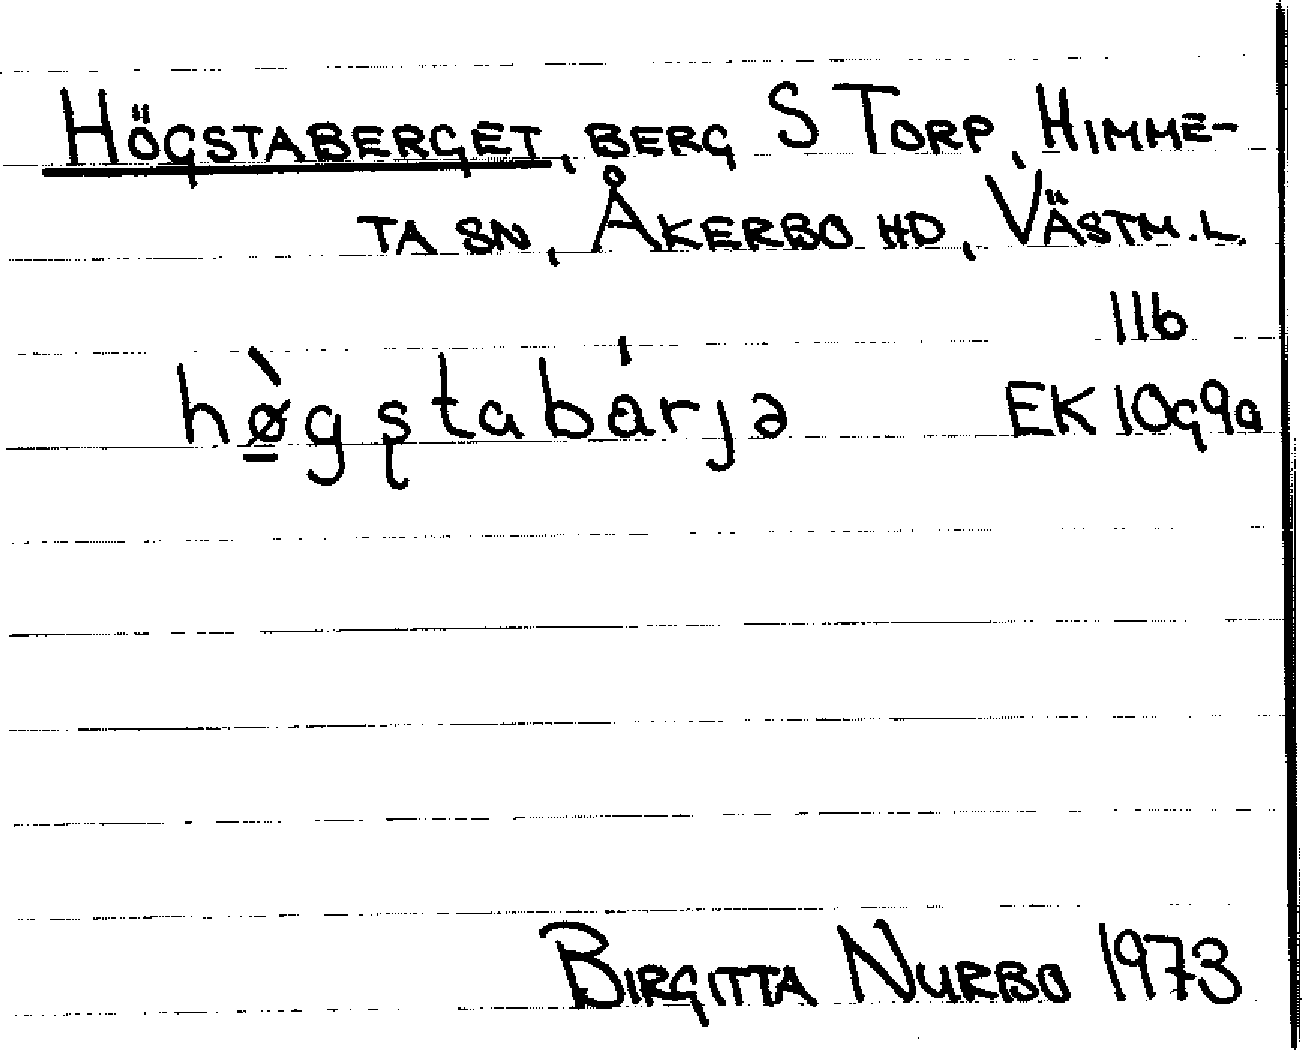 HÖGSTABERGET, BERG S TORP, HIMME-
TA SN, ÅKERBO HD, VÄSTM.L.
11b
hø̲̀gʂtabárjə EK 10g9a
BIRGITTA NURBO 1973